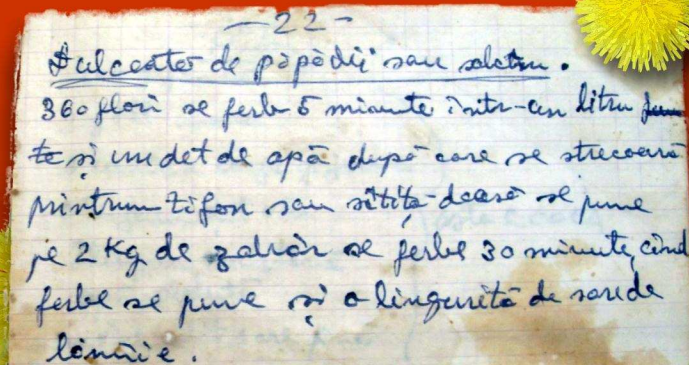 - 22 -
Dulceată de păpădii sau salcâm.
360 flori se ferb 5 minute într-un litru jum
te și un det de apă după care se strecoară
printrun tifon sau sîtiță deasă se pune
pe 2 Kg de zahăr se ferbe 30 minute, cînd
ferbe se pune și o linguriță de sarede
lămîie.